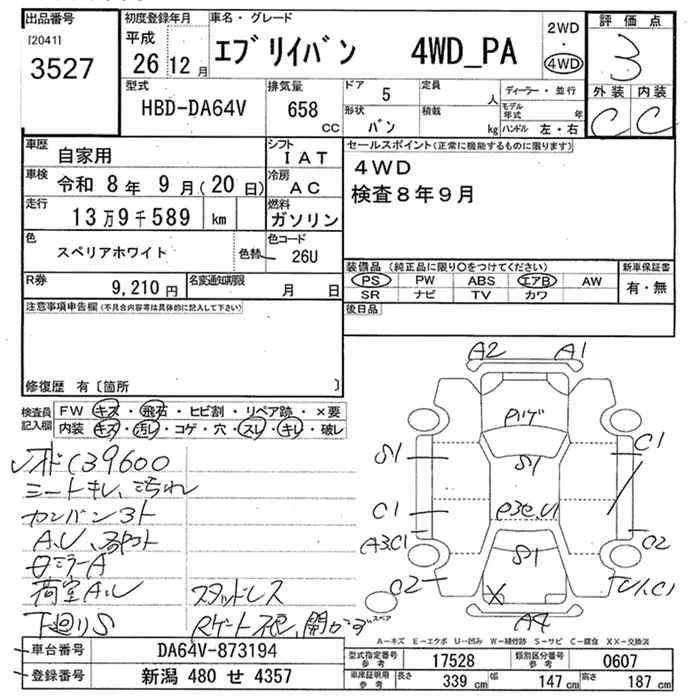 出品番号
[2041]
3527
初度登録年月
平成
26年12月
車名・グレード
エブリイバン 4WD_PA
2WD
・
4WD
評価点
3
外装 内装
C C
型式
HBD-DA64V
排気量
658
cc
ドア 5
定員 人
形状
バン
積載 kg
ディーラー・並行
モデル年式 年
ハンドル 左・右
車歴
自家用
シフト
IAT
車検 令和 8年 9月(20日)
冷房
AC
走行
13万9千589 km
燃料
ガソリン
色
スペリアホワイト
色替
色コード
26U
R券
9,210円
名変通知期限
月 日
セールスポイント(正常に機能するものに限ります)
4WD
検査8年9月
装備品 (純正品に限り○をつけてください)
PS PW ABS エアB AW
SR ナビ TV カワ
新車保証書
有・無
後日品
注意事項申告欄(不具合内容等は具体的に記入して下さい)
修復歴 有〔箇所 〕
検査員記入欄
FW キズ・飛石・ヒビ割・リペア跡・×要
内装 キズ・汚レ・コゲ・穴・スレ・キレ・破レ
139600
シートキレ、汚れ
カンバン3ト
A.U
ミラーA
荷室A.U
スタッドレス
下廻りS
A2 A1
S1
S1
C1
C1
A3.C1
C2
C2
S1
U1.C1
X
A4
スペア
A-キズ E-エクボ U-凹み W-補修跡 S-サビ C-腐食 XX-交換済
車台番号 DA64V-873194
登録番号 新潟 480 せ 4357
型式指定番号
参考
17528
類別区分番号
参考
0607
車庫証明用
参考
長さ 339 cm
幅 147 cm
高さ 187 cm